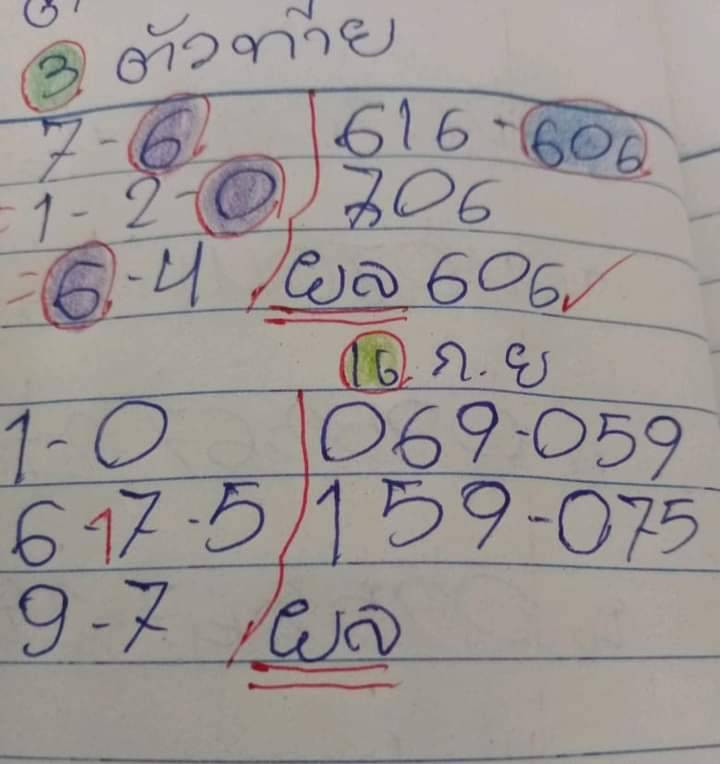 3 ตัวท้าย
7-6 616-606
=1-2-0 706
=6-4 ผล 606✓
16 ก.ย
1-0 069-059
6-7-5 159-075
9-7 ผล